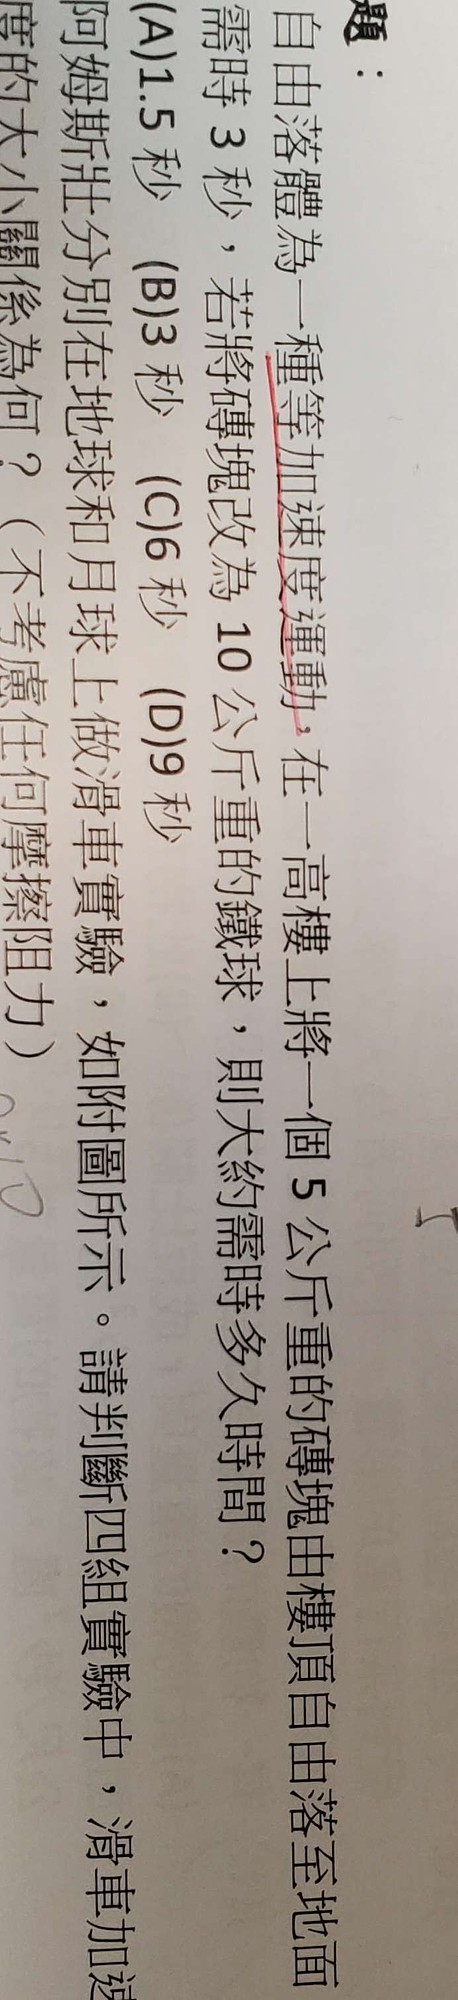 題：
自由落體為一種等加速度運動，在一高樓上將一個 5 公斤重的磚塊由樓頂自由落至地面
需時 3 秒，若將磚塊改為 10 公斤重的鐵球，則大約需時多久時間？
(A)1.5 秒 (B)3 秒 (C)6 秒 (D)9 秒
阿姆斯壯分別在地球和月球上做滑車實驗，如附圖所示。請判斷四組實驗中，滑車加速
度的大小關係為何？（不考慮任何摩擦阻力）